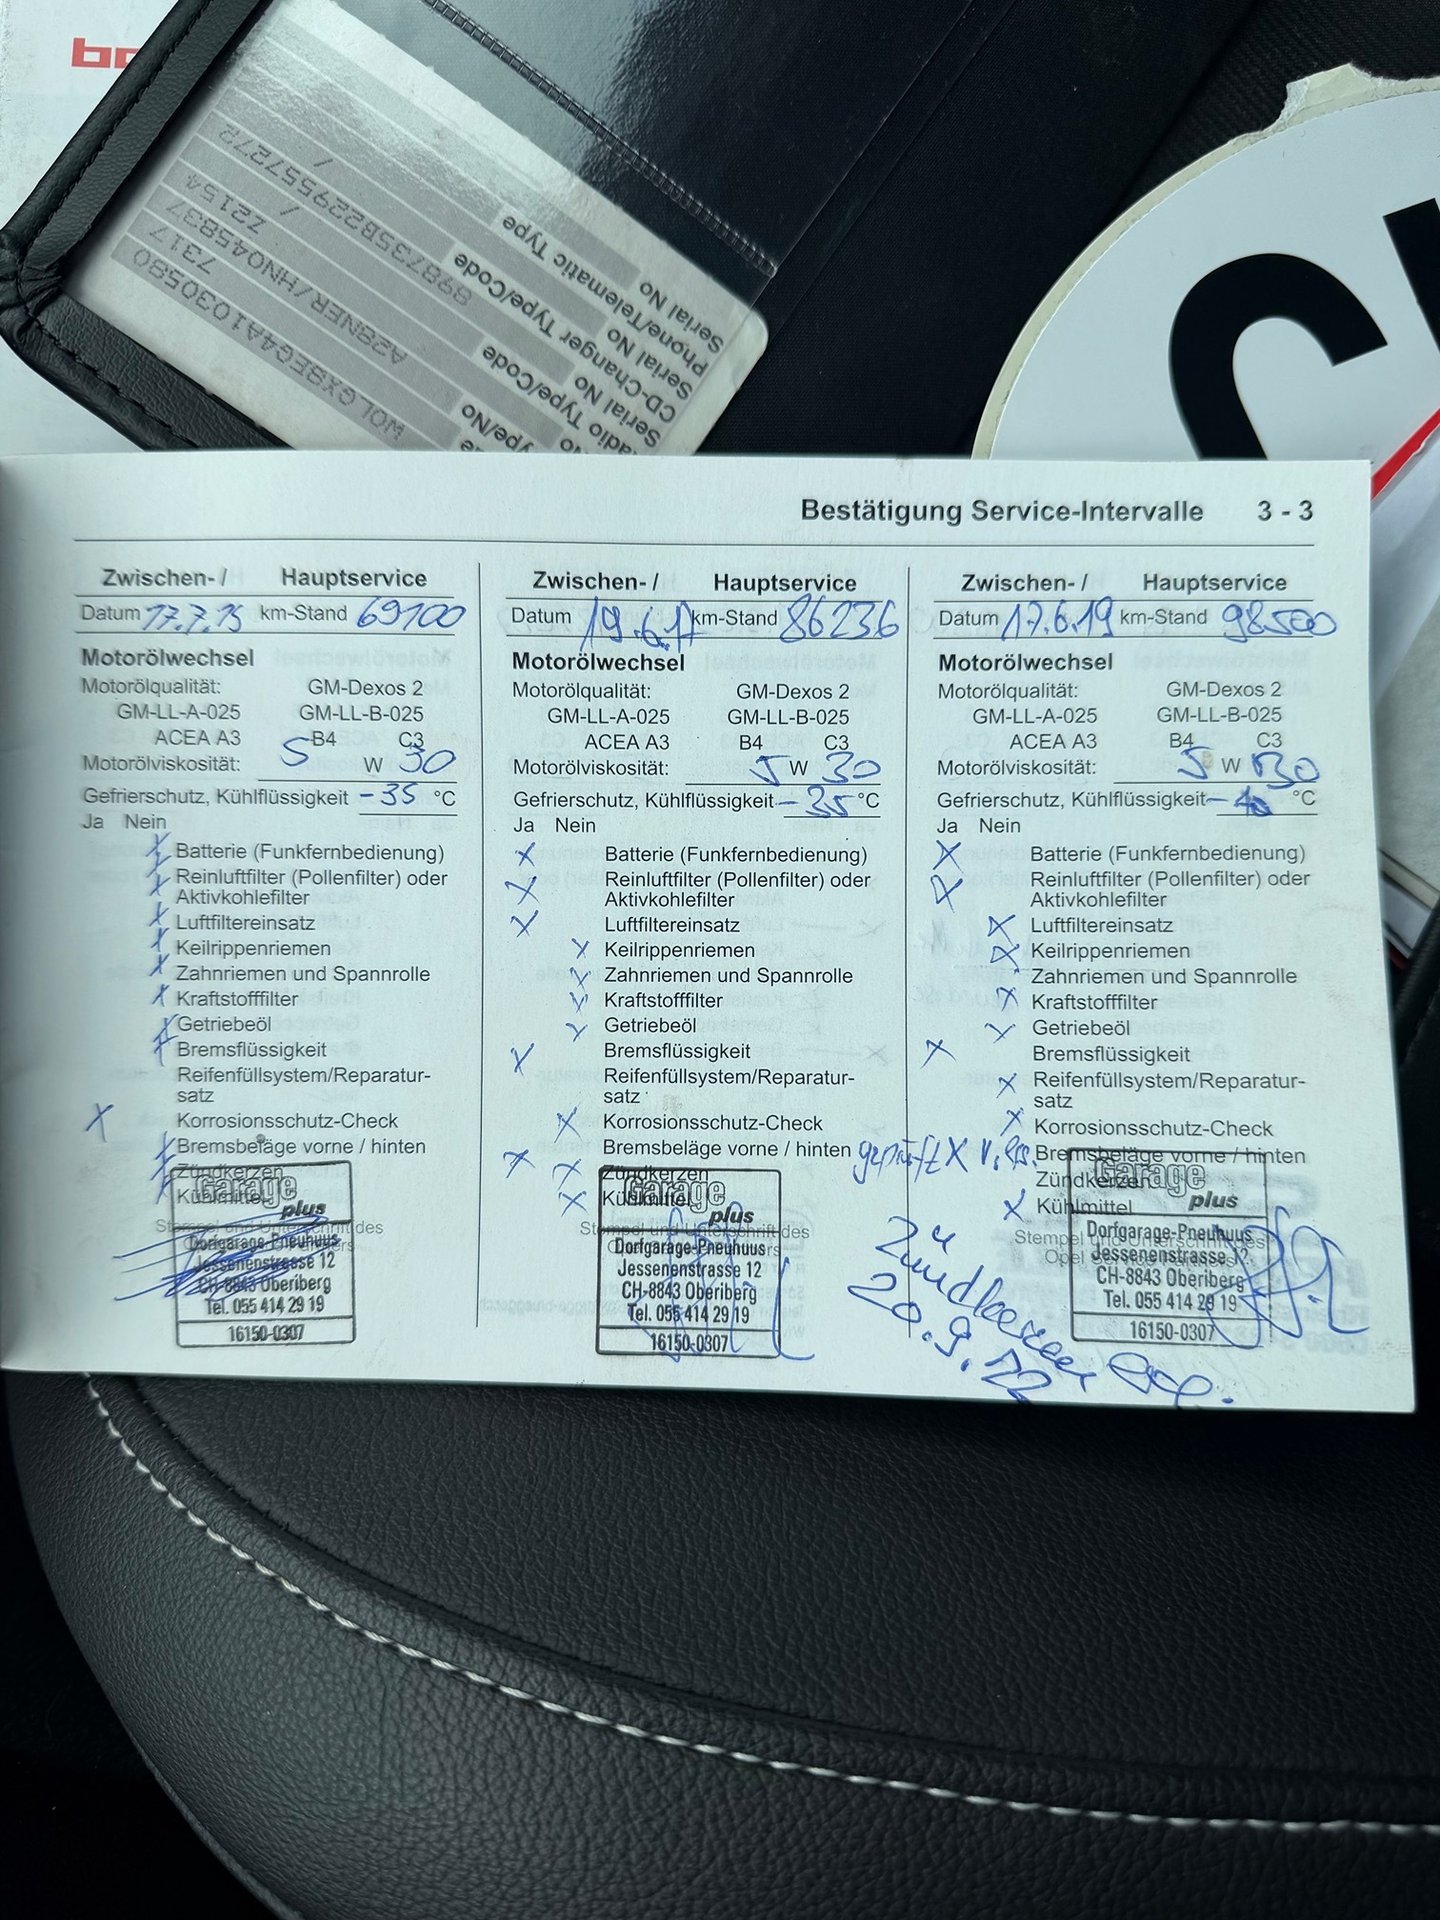 Bestätigung Service-Intervalle 3 - 3
Zwischen- / Hauptservice
Datum 17.7.15 km-Stand 69100
Motorölwechsel
Motorölqualität: GM-Dexos 2
GM-LL-A-025 GM-LL-B-025
ACEA A3 B4 C3
Motorölviskosität: 5 W 30
Gefrierschutz, Kühlflüssigkeit -35 °C
Ja Nein
X Batterie (Funkfernbedienung)
X Reinluftfilter (Pollenfilter) oder
Aktivkohlefilter
X Luftfiltereinsatz
X Keilrippenriemen
X Zahnriemen und Spannrolle
X Kraftstofffilter
X Getriebeöl
X Bremsflüssigkeit
Reifenfüllsystem/Reparatur-
satz
X Korrosionsschutz-Check
X Bremsbeläge vorne / hinten
X Zündkerzen
X Kühlmittel
Stempel und Unterschrift des
Garage
plus
Dorfgarage-Pneuhuus
Jessenenstrasse 12
CH-8843 Oberiberg
Tel. 055 414 29 19
16150-0307
Zwischen- / Hauptservice
Datum 19.6.17 km-Stand 86236
Motorölwechsel
Motorölqualität: GM-Dexos 2
GM-LL-A-025 GM-LL-B-025
ACEA A3 B4 C3
Motorölviskosität: 5 W 30
Gefrierschutz, Kühlflüssigkeit -35 °C
Ja Nein
X Batterie (Funkfernbedienung)
X Reinluftfilter (Pollenfilter) oder
Aktivkohlefilter
X Luftfiltereinsatz
X Keilrippenriemen
X Zahnriemen und Spannrolle
X Kraftstofffilter
X Getriebeöl
X Bremsflüssigkeit
Reifenfüllsystem/Reparatur-
satz
X Korrosionsschutz-Check
X Bremsbeläge vorne / hinten geprüft
X Zündkerzen
X Kühlmittel
Stempel und Unterschrift des
Garage
plus
Dorfgarage-Pneuhuus
Jessenenstrasse 12
CH-8843 Oberiberg
Tel. 055 414 29 19
16150-0307
Zwischen- / Hauptservice
Datum 17.6.19 km-Stand 98500
Motorölwechsel
Motorölqualität: GM-Dexos 2
GM-LL-A-025 GM-LL-B-025
ACEA A3 B4 C3
Motorölviskosität: 5 W 30
Gefrierschutz, Kühlflüssigkeit °C
Ja Nein
X Batterie (Funkfernbedienung)
X Reinluftfilter (Pollenfilter) oder
Aktivkohlefilter
X Luftfiltereinsatz
X Keilrippenriemen
Zahnriemen und Spannrolle
X Kraftstofffilter
X Getriebeöl
X Bremsflüssigkeit
X Reifenfüllsystem/Reparatur-
satz
X Korrosionsschutz-Check
X Bremsbeläge vorne / hinten
Zündkerzen
X Kühlmittel
Stempel und Unterschrift des
Opel Service Partners
Garage
plus
Dorfgarage-Pneuhuus
Jessenenstrasse 12
CH-8843 Oberiberg
Tel. 055 414 29 19
16150-0307
Zündkerzen
20.9.22
W0LGX8EG4A1030580
7317
A28NER/HN045837
Z2154
898735B229557272
Radio Type/Code
Serial No
CD-Changer Type/Code
Serial No
Phone/Telematic Type
Serial No